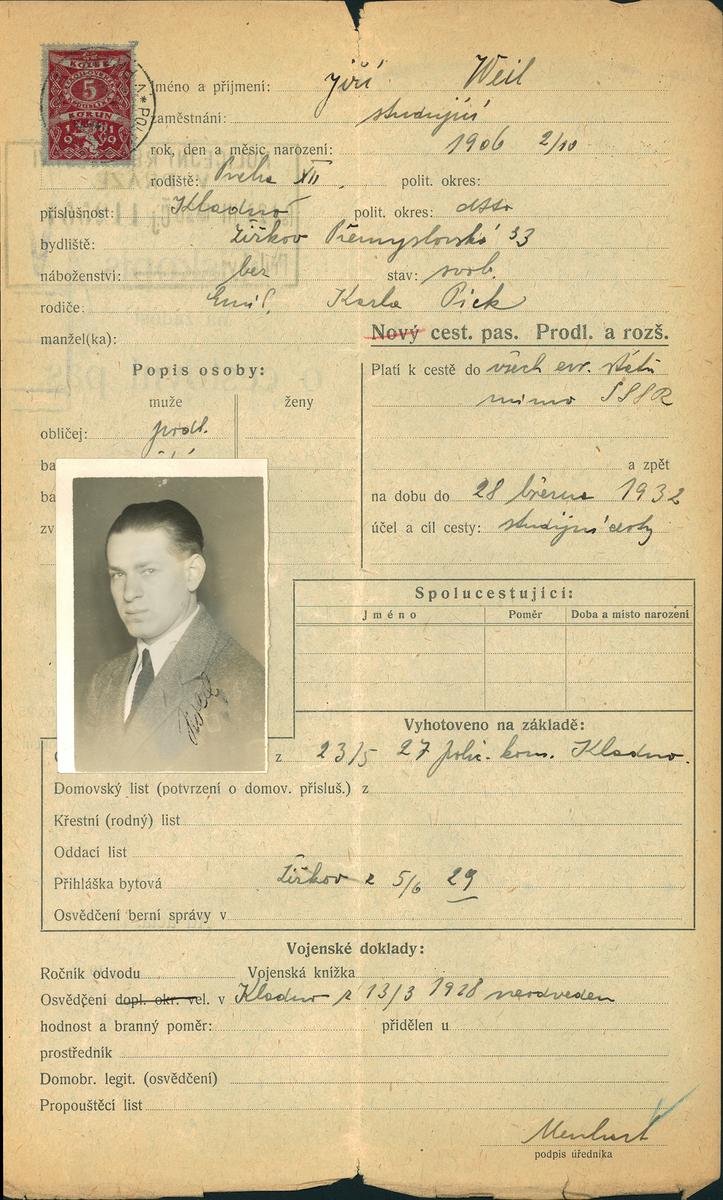 5
KORUN
1919
Jméno a příjmení: Jiří Weil
zaměstnání: studující
rok, den a měsíc narození: 1906 2/10
rodiště: Praha XII polit. okres:
příslušnost: Kladno polit. okres: dtto
bydliště: Žižkov Přemyslovská 33
náboženství: bez stav: svob.
rodiče: Emil, Karla Pick
manžel(ka):
Nový cest. pas. Prodl. a rozš.
Popis osoby:
muže ženy
obličej: prodl.
ba
ba
zv
Platí k cestě do všech evr. států
mimo SSSR
a zpět
na dobu do 28 března 1932
účel a cíl cesty: studijní cesty
Spolucestující:
Jméno Poměr Doba a místo narození
Vyhotoveno na základě:
z 23/5 27 polic. kom. Kladno.
Domovský list (potvrzení o domov. přísluš.) z
Křestní (rodný) list
Oddací list
Přihláška bytová Žižkov z 5/6 29
Osvědčení berní správy v
Vojenské doklady:
Ročník odvodu Vojenská knížka
Osvědčení dopl. okr. vel. v Kladno z 13/3 1928 neodveden
hodnost a branný poměr: přidělen u
prostředník
Domobr. legit. (osvědčení)
Propouštěcí list
podpis úředníka